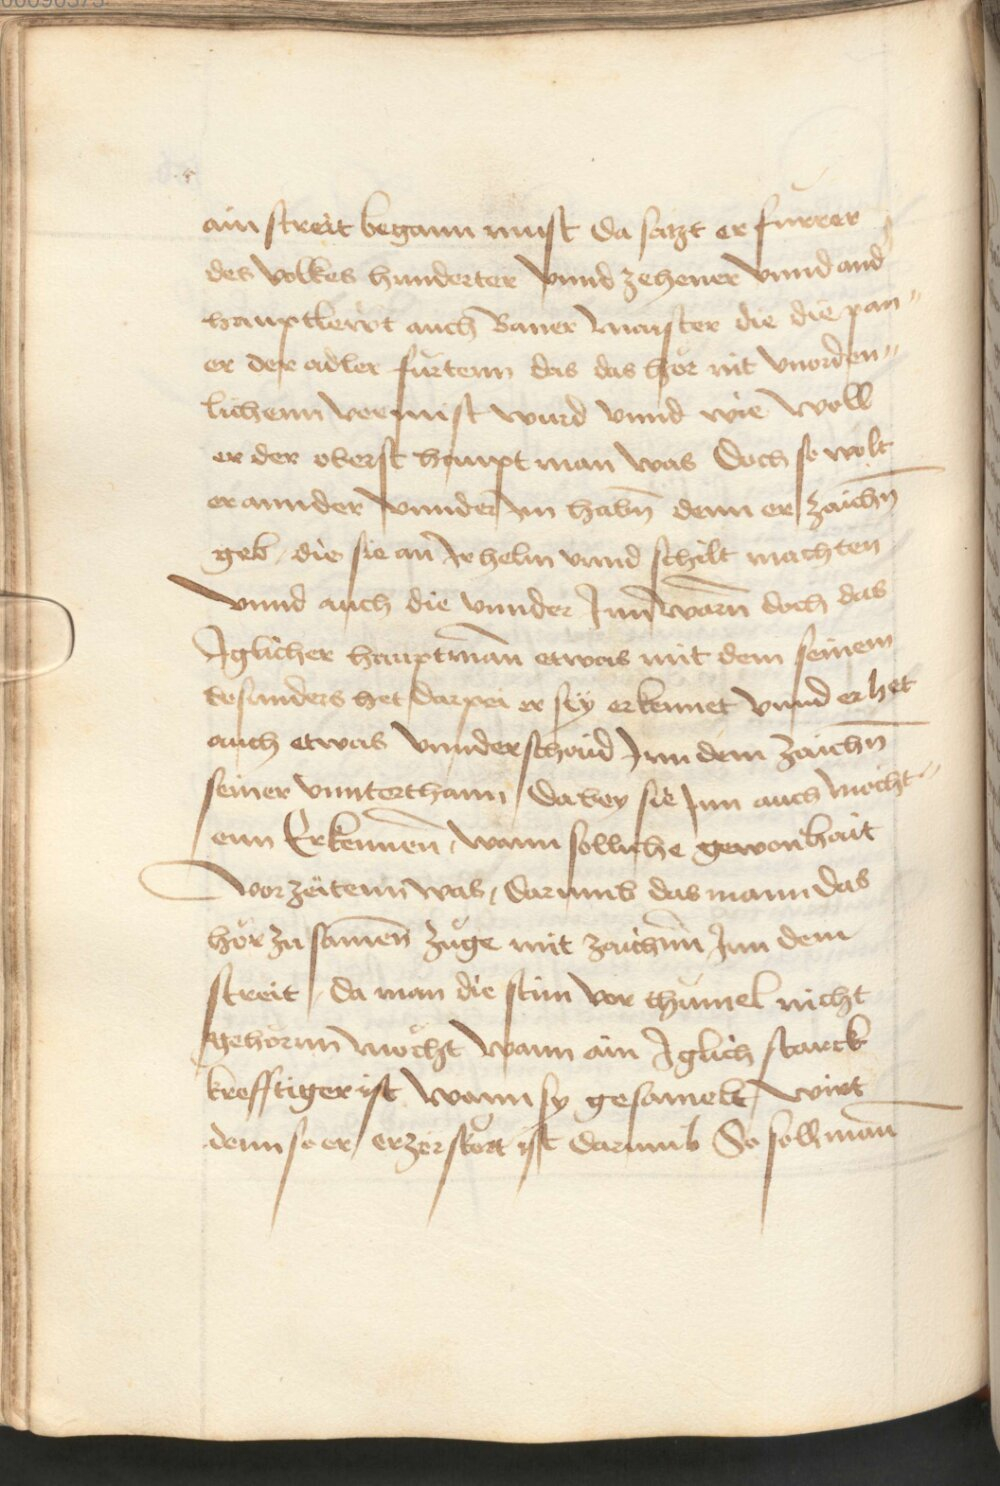 ain streit begann must da satzt er furrer
des volkes hunderter vnnd zehener vnnd and
hauptlewt auch Baner maister die die pan„
er der adler fürtenn das das hör nit vnorden„
lichenn vermist wurd vnnd wie woll
er der oberst haupt man was Doch so wolt
er annder vnnder im habn̄ denn er zaichn̄
geb / die sie an̄ Ir helm vnnd schilt machten
vnnd auch die vnnder Inn̄ warn̄ doch das
Iglicher hauptman̄ etwas mit dem seinem
besunders het darpei er sÿ erkennet vnnd er het
auch etwas vnnderschaid Inn dem zaichn̄
seiner vnnterthann / Dabey sie Inn auch möcht„
enn Erkennen̄ / wann solliche gewonhait
vor zeitenn was / darumb das mann das
hör zu samen̄ züge mit zaichnn̄ Inn dem
streit / da man die stim vor thümel nicht
gehörnn möcht wann ain Iglich starck
krefftiger ist wann sy gesamelt wirt
denn so er erzerstört ist darumb So soll man̄